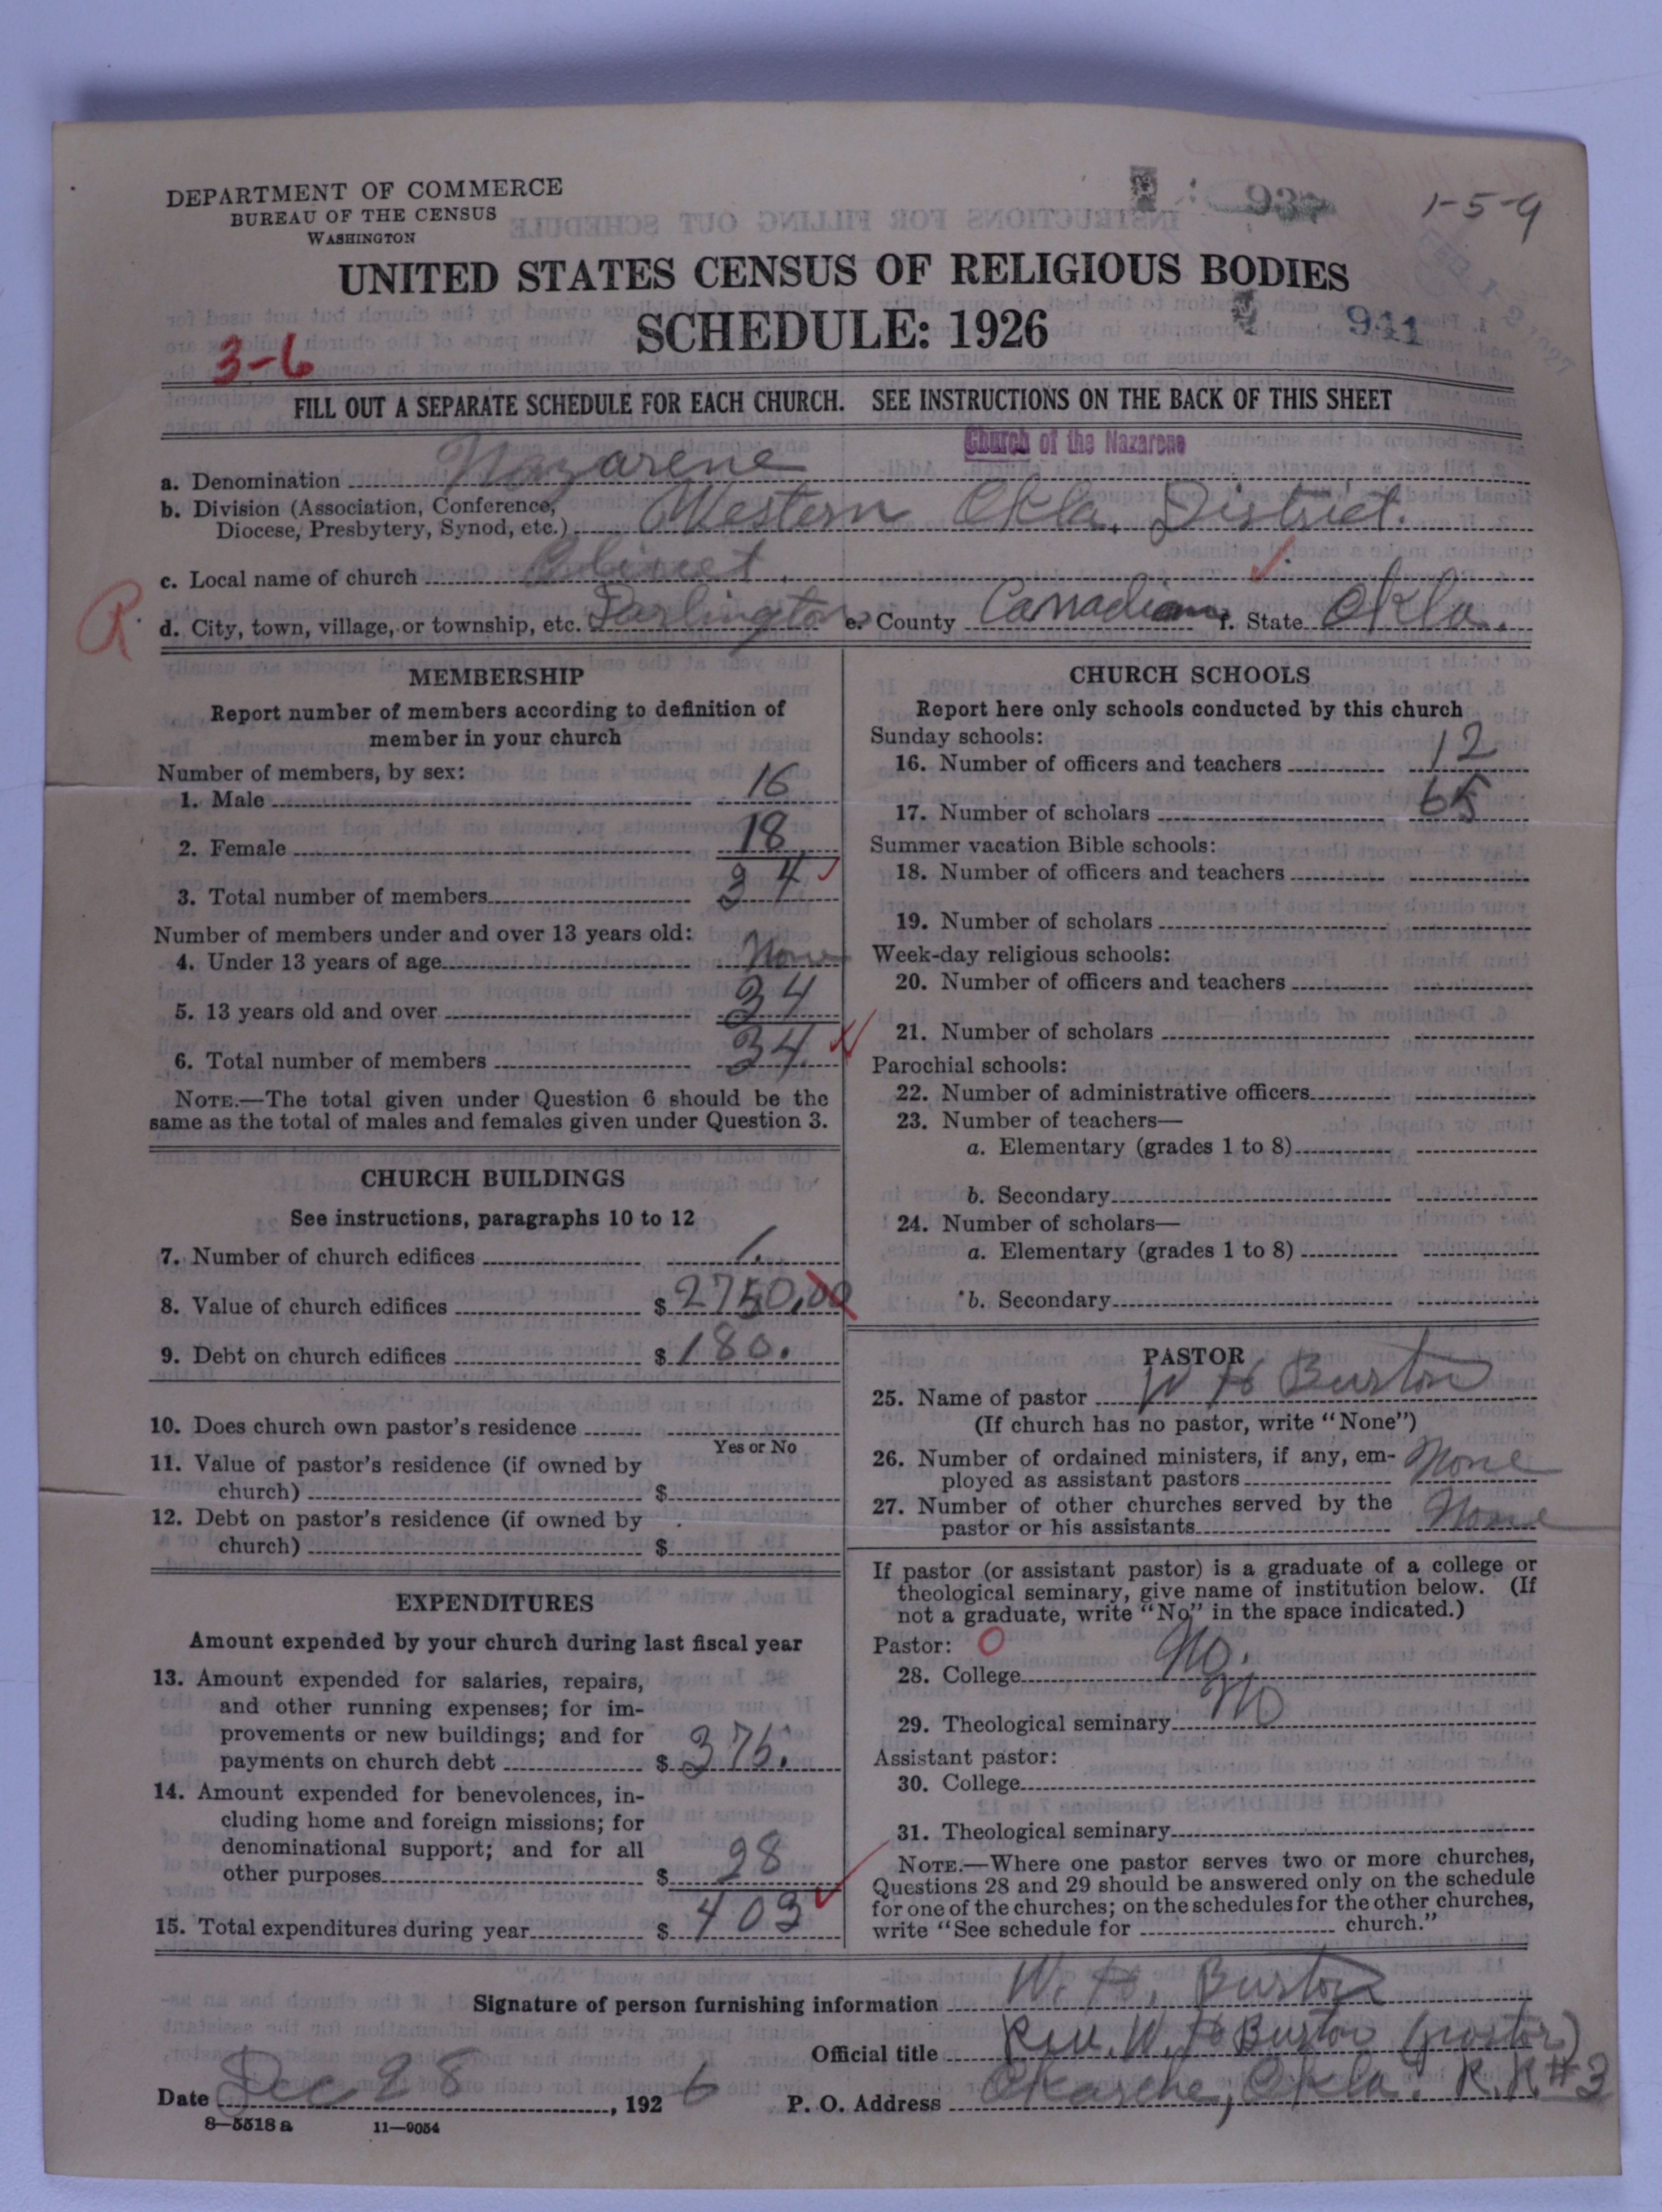 DEPARTMENT OF COMMERCE
BUREAU OF THE CENSUS
WASHINGTON
1-5-9
UNITED STATES CENSUS OF RELIGIOUS BODIES
SCHEDULE: 1926
941
3-6
FILL OUT A SEPARATE SCHEDULE FOR EACH CHURCH. SEE INSTRUCTIONS ON THE BACK OF THIS SHEET
Church of the Nazarene
a. Denomination Nazarene
b. Division (Association, Conference,
Diocese, Presbytery, Synod, etc.) Western Okla. District.
c. Local name of church
R
d. City, town, village, or township, etc. Darlington e. County Canadian f. State Okla.
MEMBERSHIP
Report number of members according to definition of
member in your church
Number of members, by sex:
1. Male 16
2. Female 18
3. Total number of members 34
Number of members under and over 13 years old:
4. Under 13 years of age None
5. 13 years old and over 34
6. Total number of members 34
NOTE.—The total given under Question 6 should be the
same as the total of males and females given under Question 3.
CHURCH BUILDINGS
See instructions, paragraphs 10 to 12
7. Number of church edifices 1.
8. Value of church edifices $ 2750.00
9. Debt on church edifices $ 180.
10. Does church own pastor's residence
Yes or No
11. Value of pastor's residence (if owned by
church) $
12. Debt on pastor's residence (if owned by
church) $
EXPENDITURES
Amount expended by your church during last fiscal year
13. Amount expended for salaries, repairs,
and other running expenses; for im-
provements or new buildings; and for
payments on church debt $ 375.
14. Amount expended for benevolences, in-
cluding home and foreign missions; for
denominational support; and for all
other purposes $ 28
15. Total expenditures during year $ 403
CHURCH SCHOOLS
Report here only schools conducted by this church
Sunday schools:
16. Number of officers and teachers 12
17. Number of scholars 65
Summer vacation Bible schools:
18. Number of officers and teachers
19. Number of scholars
Week-day religious schools:
20. Number of officers and teachers
21. Number of scholars
Parochial schools:
22. Number of administrative officers
23. Number of teachers—
a. Elementary (grades 1 to 8)
b. Secondary
24. Number of scholars—
a. Elementary (grades 1 to 8)
b. Secondary
PASTOR
25. Name of pastor W H Burton
(If church has no pastor, write "None")
26. Number of ordained ministers, if any, em-
ployed as assistant pastors None
27. Number of other churches served by the
pastor or his assistants None
If pastor (or assistant pastor) is a graduate of a college or
theological seminary, give name of institution below. (If
not a graduate, write "No" in the space indicated.)
Pastor: O
28. College No.
29. Theological seminary No
Assistant pastor:
30. College
31. Theological seminary
NOTE.—Where one pastor serves two or more churches,
Questions 28 and 29 should be answered only on the schedule
for one of the churches; on the schedules for the other churches,
write "See schedule for church."
Signature of person furnishing information W. H. Burton
Official title Rev. W. H Burton (pastor)
Date Dec 28, 1926 P. O. Address Okarche, Okla. R.R.#3
8—5518 a 11—9054